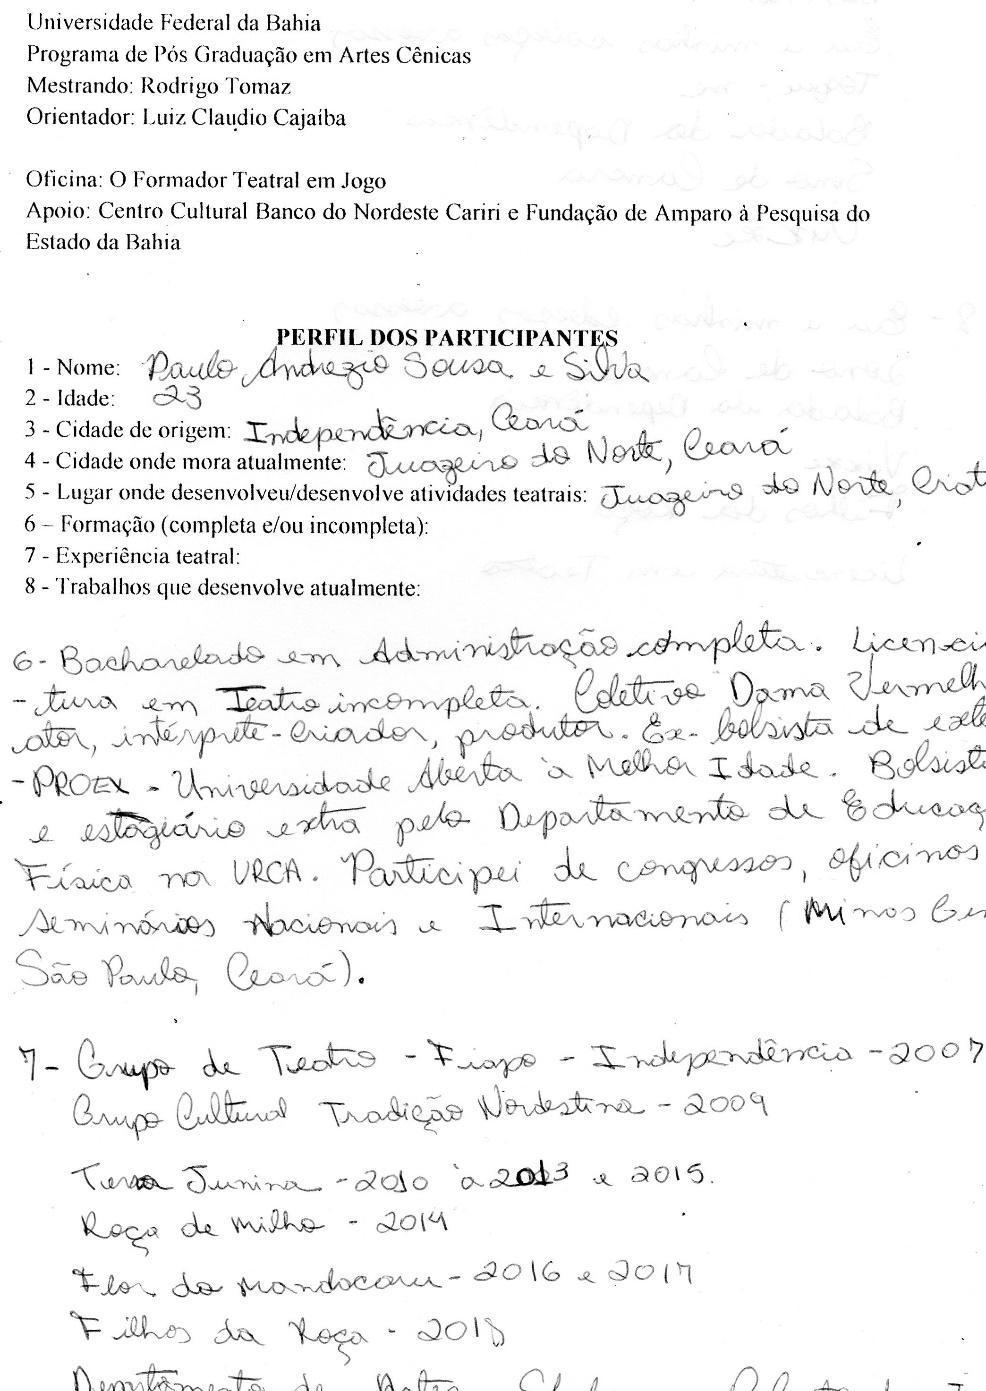 Universidade Federal da Bahia
Programa de Pós Graduação em Artes Cênicas
Mestrando: Rodrigo Tomaz
Orientador: Luiz Claudio Cajaíba
Oficina: O Formador Teatral em Jogo
Apoio: Centro Cultural Banco do Nordeste Cariri e Fundação de Amparo à Pesquisa do
Estado da Bahia
PERFIL DOS PARTICIPANTES
1 - Nome: Paulo Andrezio Sousa e Silva
2 - Idade: 23
3 - Cidade de origem: Independência, Ceará
4 - Cidade onde mora atualmente: Juazeiro do Norte, Ceará
5 - Lugar onde desenvolveu/desenvolve atividades teatrais: Juazeiro do Norte, Crat
6 – Formação (completa e/ou incompleta):
7 - Experiência teatral:
8 - Trabalhos que desenvolve atualmente:
6- Bacharelado em Administração completa. Licenci
-tura em Teatro incompleta. Coletivo Dama Vermelh
ator, intérprete-criador, produtor. Ex-bolsista de exte
-PROEX - Universidade Aberta à Melhor Idade. Bolsist
e estagiário extra pelo Departamento de Educaç
Física na URCA. Participei de congressos, oficinas
seminários Nacionais e Internacionais (Minas Ger
São Paulo, Ceará).
7- Grupo de Teatro - Fiapo - Independência - 2007
Grupo Cultural Tradição Nordestina - 2009
Terra Junina - 2010 à 2013 e 2015.
Roça de Milho - 2014
Flor do Mandacaru - 2016 e 2017
Filhos da Roça - 2018
Departamento de